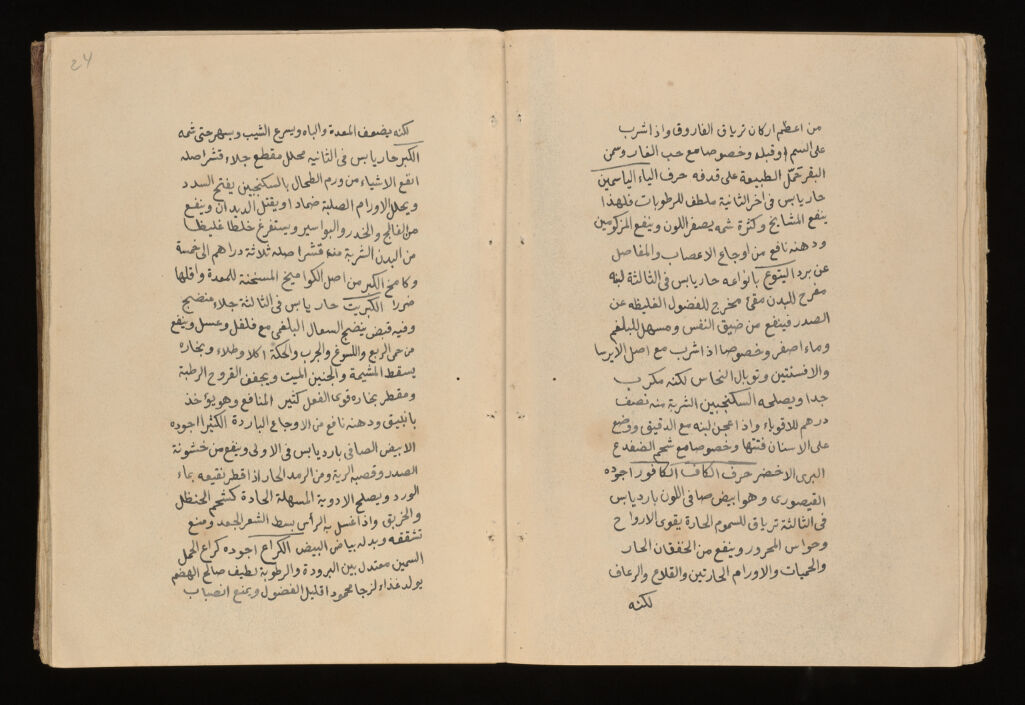 من اعظم اركان ترياق الفاروق واذا شرب
على السم او قبله وخصوصا مع حب الغار وسمن
البقر تحمل الطبيعة على قدفه حرف الياء الياسمين
حار يابس فى اخر الثانية ملطف للرطوبات فلهذا
ينفع المشايخ وكثرة شمه يصفر اللون وينفع المزكومين
ودهنه نافع من اوجاع الاعصاب والمفاصل
عن برد اليتوع بانواعه حار يابس فى الثالثة لبنه
مفرح للبدن مقئ مخرج للفضول الغليظه عن
الصدر فينفع من ضيق النفس ومسهل للبلغم
وماء اصفر وخصوصا اذا شرب مع اصل الايرسا
والافسنتين وتوبال النحاس لكنه مكرب
جدا ويصلحه السكنجبين الشربة منه نصف
درهم للاقوياء واذا عجن لبنه مع الدقيق ووضع
على الاسنان فتتها وخصوصا مع شحم الضفدع
البرى الاخضر حرف الكاف الكافور اجوده
القيصورى وهو ابيض صافى اللون بارد يابس
فى الثالثة ترياق للسموم الحارة يقوى الارواح
وحواس المحرور وينفع من الخفقان الحار
والحميات والاورام الحارتين والقلاع والرعاف
لكنه
24
لكنه يضعف المعدة والباه ويسرع الشيب ويسهر حتى شمه
الكبر حار يابس فى الثانيه محلل مقطع جلاء قشر اصله
انفع الاشياء من ورم الطحال بالسكنجبين يفتح السدد
ويحلل الاورام الصلبة ضمادا ويقتل الديدان وينفع
من الفالج والخدر والبواسير ويستفرغ خلطا غليظا
من البدن الشربة من قشر اصله ثلاثة دراهم الى خمسة
وكامخ الكبر من اصل الكواميخ المسخنة للمعدة واقلها
ضررا الكبريت حار يابس فى الثالثة جلاء منضج
وفيه قبض ينضج السعال البلغمى مع فلفل وعسل وينفع
من حمى الربع واللسوع والجرب والحكة اكلا وطلاء وبخاره
يسقط المشيمة والجنين الميت ويجفف القروح الرطبة
ومقطر بخاره قوى الفعل كثير المنافع وهو يؤخذ
بانبيق ودهنه نافع من الاوجاع الباردة الكثيرا اجوده
الابيض الصافى بارد يابس فى الاولى وينفع من خشونة
الصدر وقصبه الرية ومن الرمد الحار اذا قطر نقيعه بماء
الورد ويصلح الادوية المسهلة الحادة كشحم الحنظل
والخربق واذا غسل به الرأس بسط الشعر الجعد ومنع
تشققه وبدله بياض البيض الكراع اجوده كراع الحمل
السمين معتدل بين البرودة والرطوبة لطيف صالح الهضم
يولد غذاء لزجا محمودا قليل الفضول ويمنع انصباب